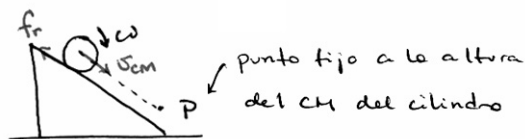 fr
ω
υCM
P
punto fijo a la altura
del CM del cilindro